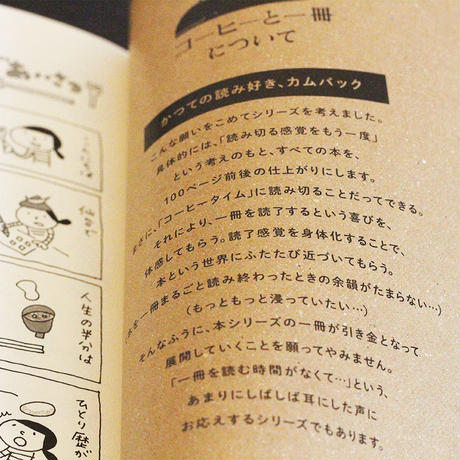 コーヒーと一冊
について
かつての読み好き、カムバック
こんな願いをこめてシリーズを考えました。
具体的には、「読み切る感覚をもう一度」
という考えのもと、すべての本を、
100ページ前後の仕上がりにします。
まさに、「コーヒータイム」に読み切ることだってできる。
それにより、一冊を読了するという喜びを、
体感してもらう。読了感覚を身体化することで、
本という世界にふたたび近づいてもらう。
を一冊まるごと読み終わったときの余韻がたまらない…)
(もっともっと浸っていたい…)
そんなふうに、本シリーズの一冊が引き金となって
展開していくことを願ってやみません。
「一冊を読む時間がなくて…」という、
あまりにしばしば耳にした声に
お応えするシリーズでもあります。
ごあいさつ
仙台で
人生の半分は
ひとり暦が